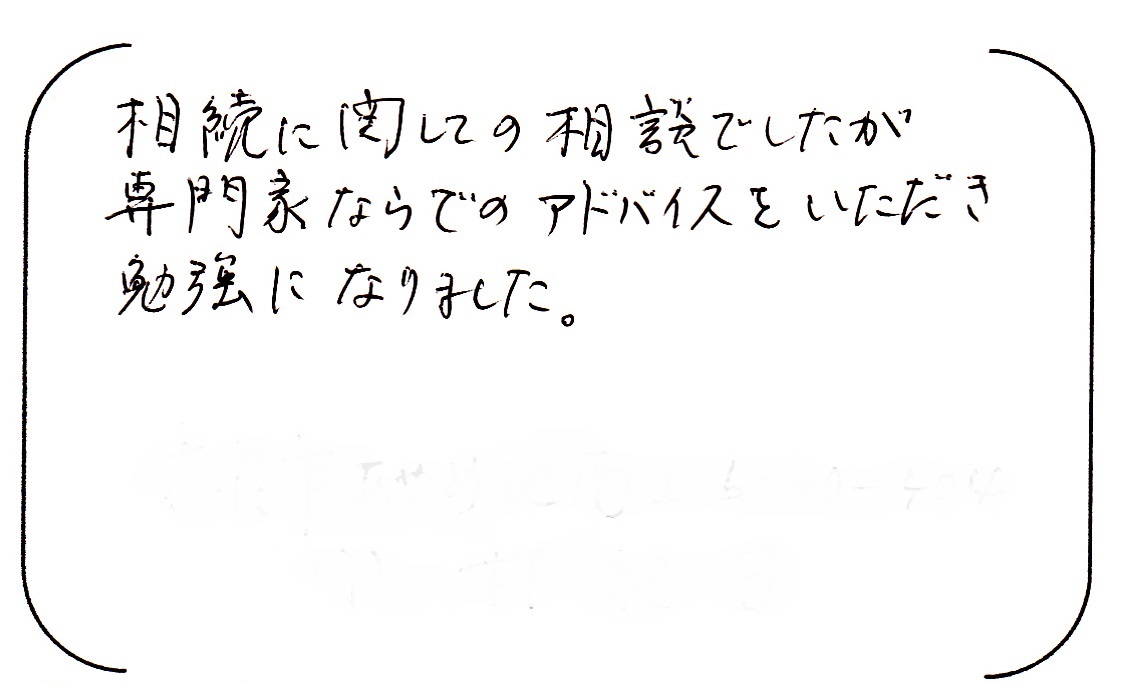 相続に関しての相談でしたが
専門家ならでのアドバイスをいただき
勉強になりました。